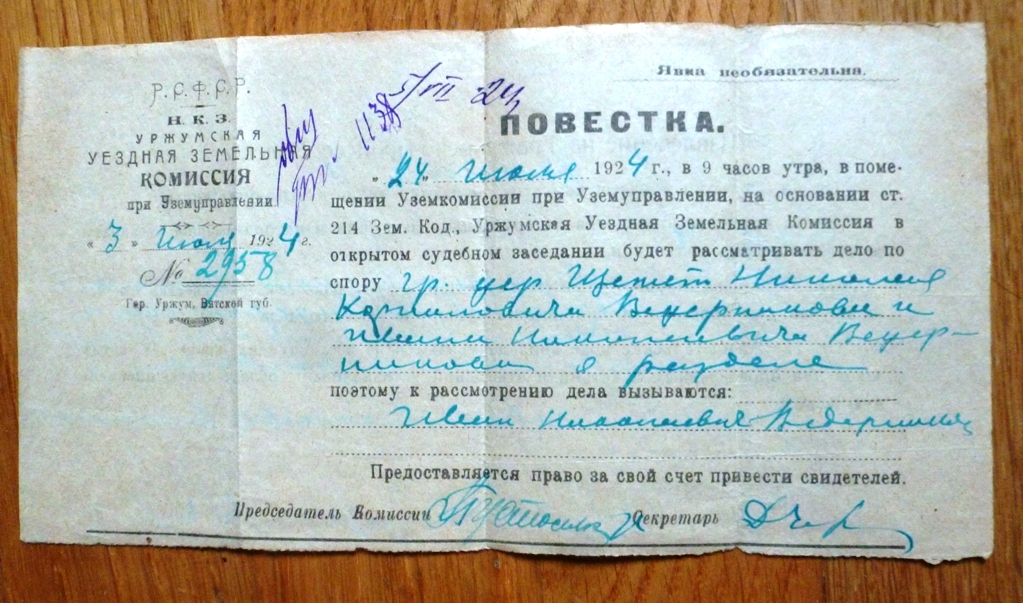 Р. С. Ф. С. Р.
Н. К. З.
УРЖУМСКАЯ
УЕЗДНАЯ ЗЕМЕЛЬНАЯ
КОМИССИЯ
при Уземуправлении
„ 3 „ Июля 1924 г.
№ 2958
Гор. Уржум, Вятской губ.
1138 5/VII 24
Явка необязательна.
ПОВЕСТКА.
„24„ Июля 1924 г., в 9 часов утра, в поме-
щении Уземкомиссии при Уземуправлении, на основании ст.
214 Зем. Код., Уржумская Уездная Земельная Комиссия в
открытом судебном заседании будет рассматривать дело по
спору гр. дер Николая
Ведерникова и
Ивана Николаевича Ведер-
никова о разделе
поэтому к рассмотрению дела вызываются:
Иван Николаевич Ведерников
Предоставляется право за свой счет привести свидетелей.
Председатель Комиссии Секретарь